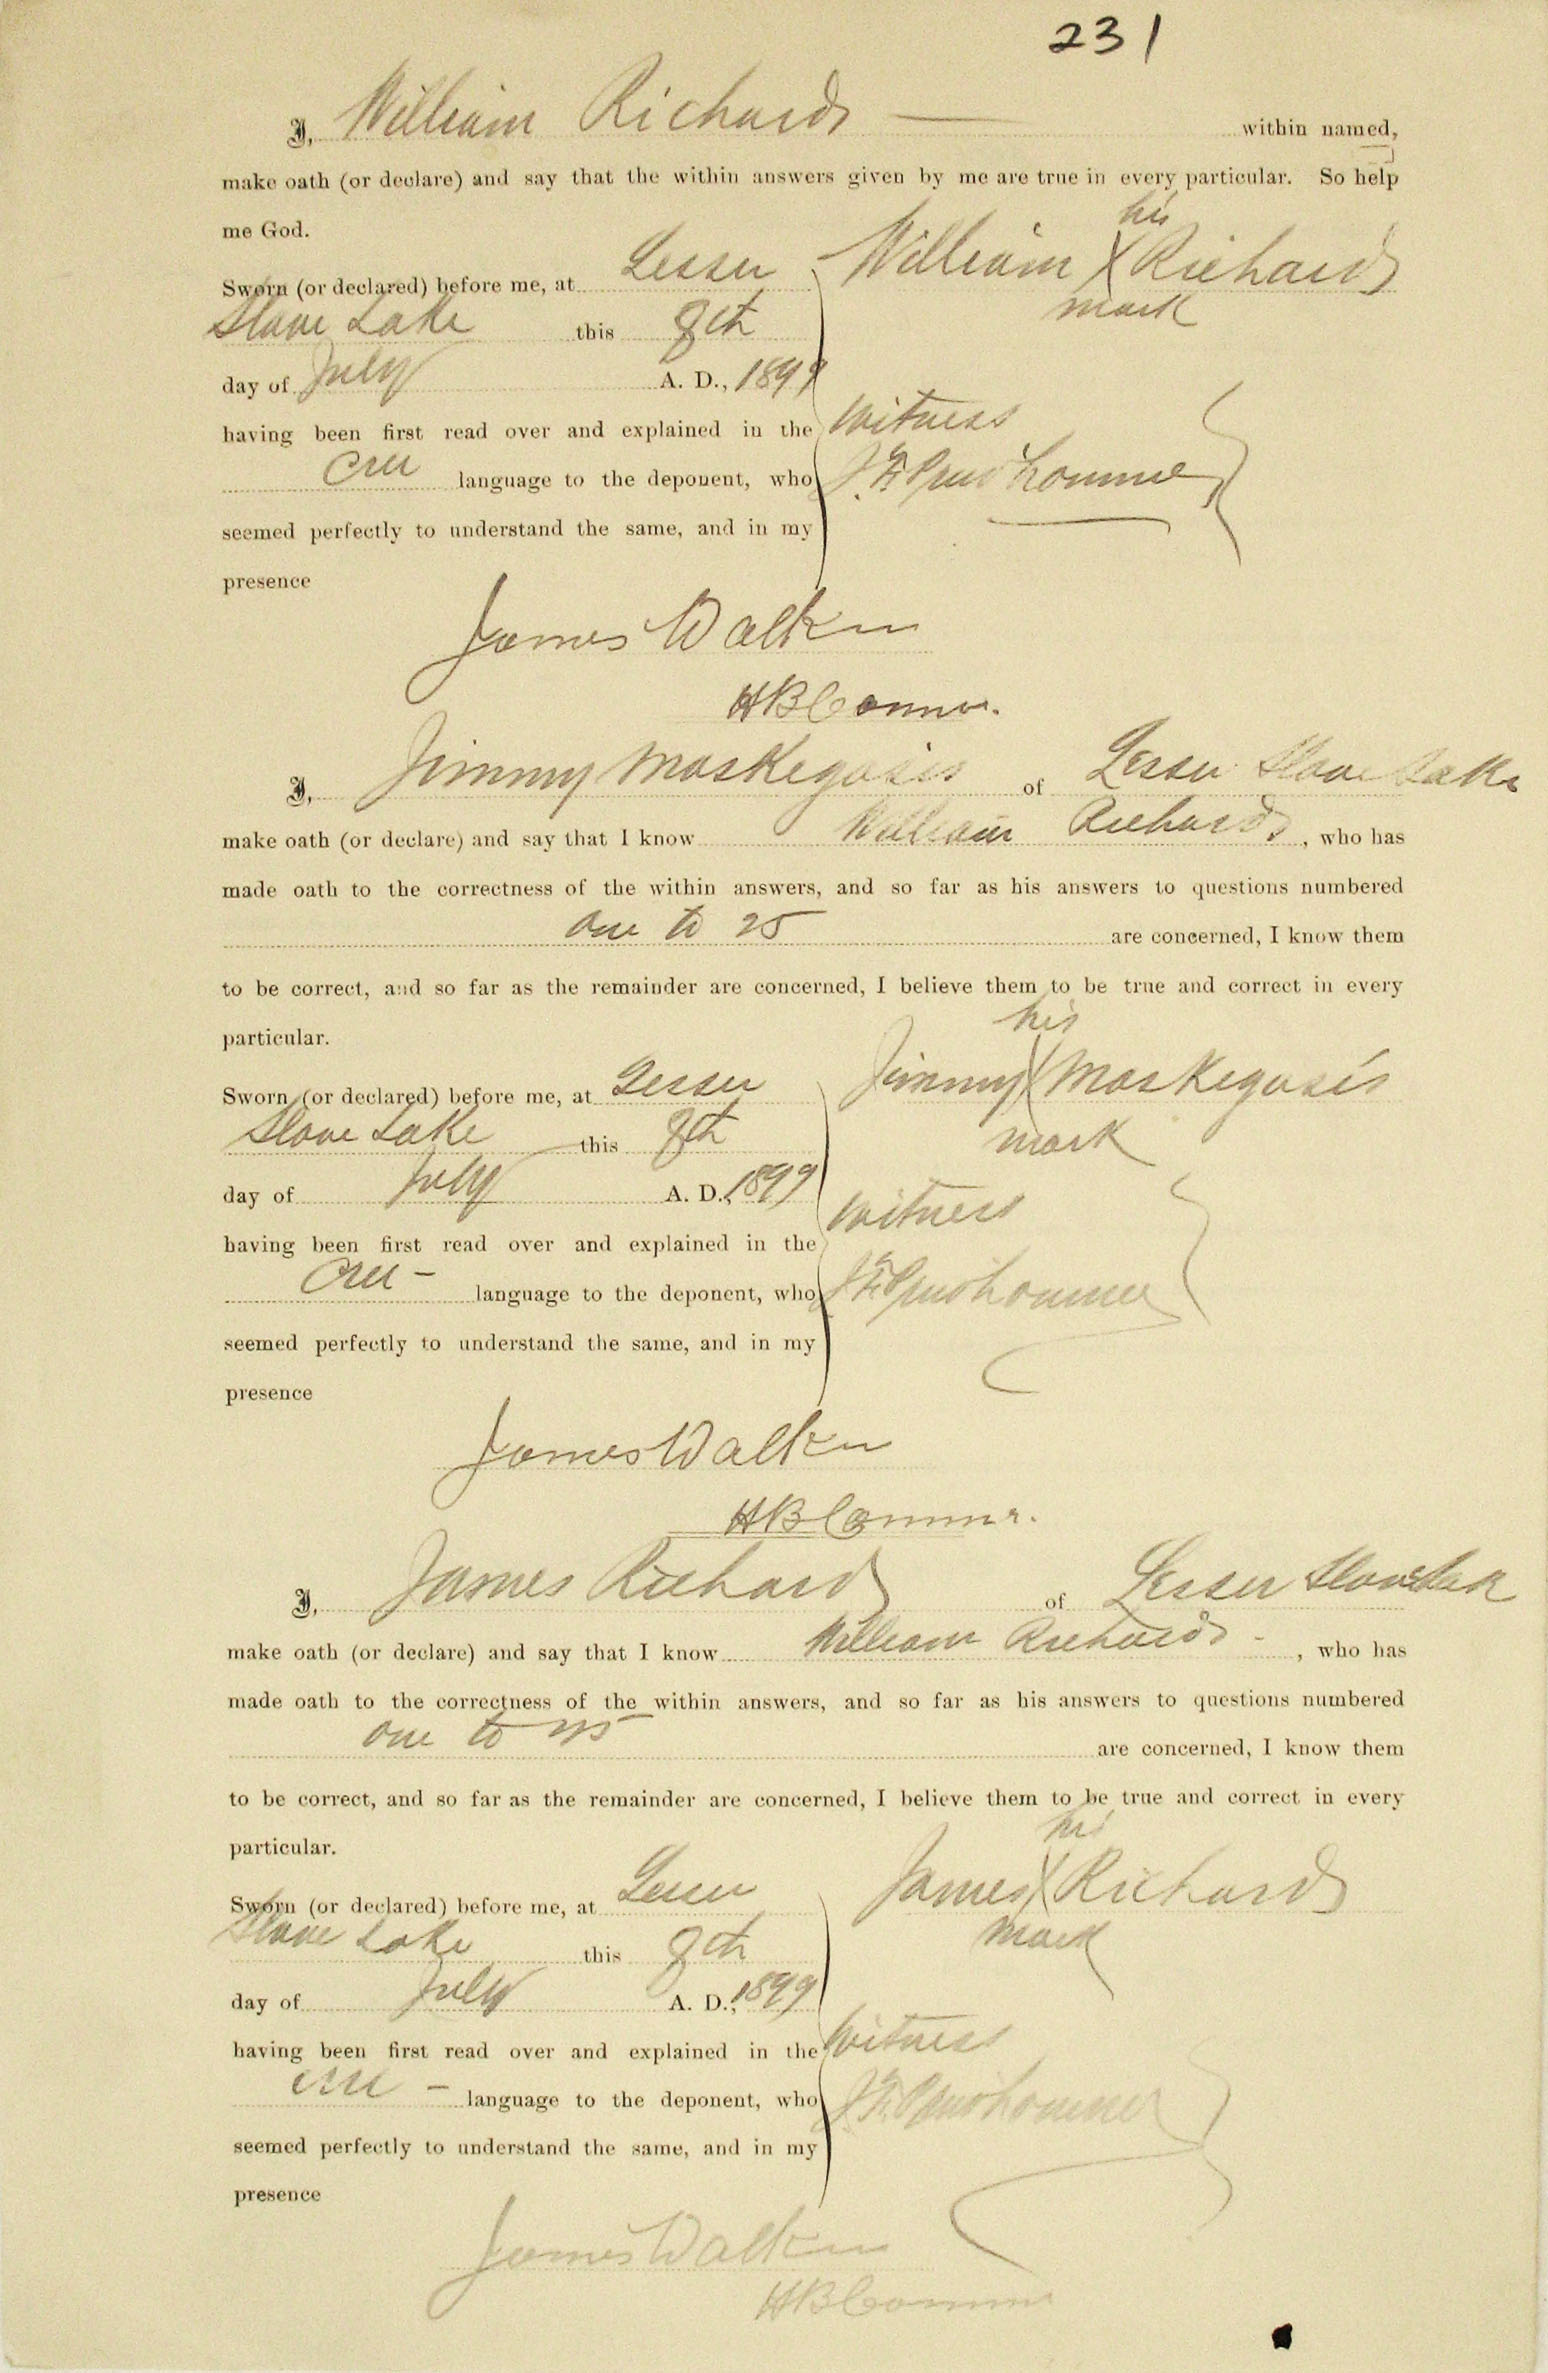 231
I, William Richards within named,
make oath (or declare) and say that the within answers given by me are true in every particular. So help
me God.
his
Sworn (or declared) before me, at Lesser William X Richards
mark
Slave Lake this 8th
day of July A. D., 1899
having been first read over and explained in the Witness
Cree language to the deponent, who J. F. Prudhomme
seemed perfectly to understand the same, and in my
presence
James Walker
HB Commr.
I, Jimmy Moskegosis of Lesser Slave Lake
make oath (or declare) and say that I know William Richards, who has
made oath to the correctness of the within answers, and so far as his answers to questions numbered
One to 25 are concerned, I know them
to be correct, and so far as the remainder are concerned, I believe them to be true and correct in every
his
particular.
Sworn (or declared) before me, at Lesser Jimmy X Moskegosis
Slave Lake this 8th mark
day of July A. D., 1899
Witness
having been first read over and explained in the
Cree - language to the deponent, who J. F. Prudhomme
seemed perfectly to understand the same, and in my
presence
James Walker
HB Commr.
I, James Richards of Lesser Slave Lake
make oath (or declare) and say that I know William Richards -, who has
made oath to the correctness of the within answers, and so far as his answers to questions numbered
One to 25 are concerned, I know them
to be correct, and so far as the remainder are concerned, I believe them to be true and correct in every
his
particular.
Sworn (or declared) before me, at Lesser James X Richards
Slave Lake this 8th mark
day of July A. D., 1899
having been first read over and explained in the Witness
Cree - language to the deponent, who J. F. Prudhomme
seemed perfectly to understand the same, and in my
presence
James Walker
HB Commr